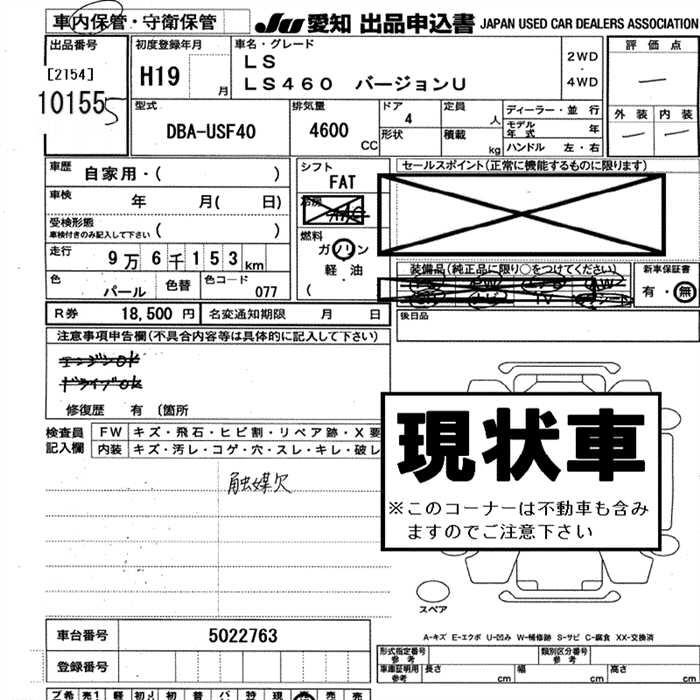 車内保管・守衛保管
JU 愛知 出品申込書 JAPAN USED CAR DEALERS ASSOCIATION
出品番号
[2154]
10155
初度登録年月
H19 月
車名・グレード
LS
LS460 バージョンU
2WD
・
4WD
評価点
外装 内装
型式
DBA-USF40
排気量
4600 CC
ドア
4
形状
定員
人
積載
kg
ディーラー・並行
モデル年式 年
ハンドル 左・右
車歴 自家用・( )
車検 年 月( 日)
受検形態
車検付きのみ記入して下さい ( )
走行 9万6千153km
色 パール 色替 色コード 077
シフト
FAT
冷房
AAC
燃料
ガソリン
軽油
(
セールスポイント(正常に機能するものに限ります)
装備品(純正品に限り○をつけてください)
TV
新車保証書
有・無
後日品
R券 18,500円 名変通知期限 月 日
注意事項申告欄(不具合内容等は具体的に記入して下さい)
エンジンOK
ドライブOK
修復歴 有 (箇所
検査員
記入欄
FW キズ・飛石・ヒビ割・リペア跡・X要
内装 キズ・汚レ・コゲ・穴・スレ・キレ・破レ
触媒欠
現状車
※このコーナーは不動車も含み
ますのでご注意下さい
スペア
A-キズ E-エクボ U-凹み W-補修跡 S-サビ C-腐食 XX-交換済
車台番号 5022763
登録番号
形式指定番号
参考
類別区分番号
参考
車庫証明用
参考
長さ cm 幅 cm 高さ cm